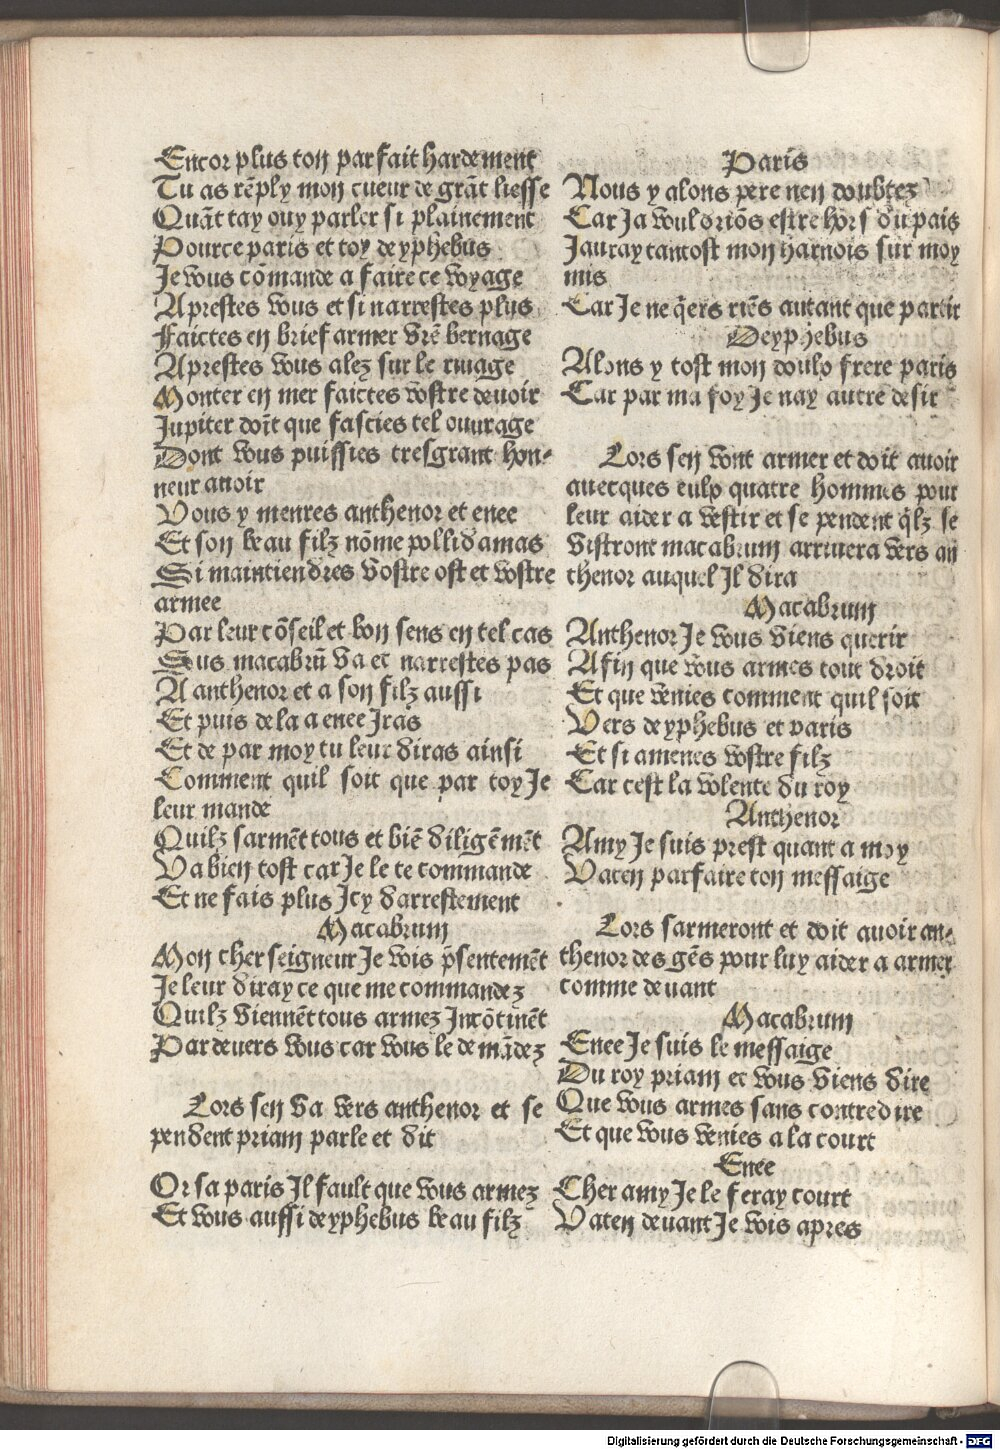 Encor plus ton parfait hardement
Tu as rẽply mon cueur de grãt liesse
Quãt tay ouy parler si plainement
Pource paris et toy deyphebus
Je vous cõmande a faire ce voyage
Aprestes vous et si narrestes plus
Faictes en brief armer vrẽ bernage
Aprestes vous alez sur le riuage
Monter en mer faictes vostre deuoir
Jupiter doĩt que fascies tel ouurage
Dont vous puissies tresgrant hon-
neur auoir
Vous y menres anthenor et enee
Et son beau filz nõme pollidamas
Si maintiendres vostre ost et vostre
armee
Par leur cõseil et bon sens en tel cas
Sus macabrũ va et narrestes pas
A anthenor et a son filz aussi
Et puis de la a enee Jras
Et de par moy tu leur diras ainsi
Comment quil soit que par toy Je
leur mande
Quilz sarmẽt tous et biẽ diligẽmẽt
Va bien tost car Je le te commande
Et ne fais plus Jcy darrestement
Macabrum
Mon cher seigneur Je vois p̃sentemẽt
Je leur diray ce que me commandez
Quilz viennẽt tous armez Jncõtinẽt
Pardeuers vous car vous le demãdez
Lors sen va vers anthenor et se
pendent priam parle et dit
Or sa paris Jl fault que vous armez
Et vous aussi deyphebus beau filz
Paris
Nous y alons pere nen doubtez
Car Ja vouldriõs estre hors du pais
Jauray tantost mon harnois sur moy
mis
Car Je ne q̃ers riẽs autant que partir
Deyphebus
Alons y tost mon doulx frere paris
Car par ma foy Je nay autre desir
Lors sen vont armer et doit auoir
auecques eulx quatre hommes pour
leur aider a vestir et se pendent q̃lz se
vistront macabrum arriuera vers an
thenor auquel Jl dira
Macabrum
Anthenor Je vous viens querir
Afin que vous armes tout droit
Et que venies comment quil soit
Vers deyphebus et paris
Et si amenes vostre filz
Car cest la volente du roy
Anthenor
Amy Je suis prest quant a moy
Vaten parfaire ton messaige
Lors sarmeront et doit auoir an-
thenor des gẽs pour luy aider a armer
comme deuant
Macabrum
Enee Je suis le messaige
Du roy priam et vous viens dire
Que vous armes sans contredire
Et que vous venies a la court
Enee
Cher amy Je le feray court
Vaten deuant Je vois apres
Digitalisierung gefördert durch die Deutsche Forschungsgemeinschaft - DFG